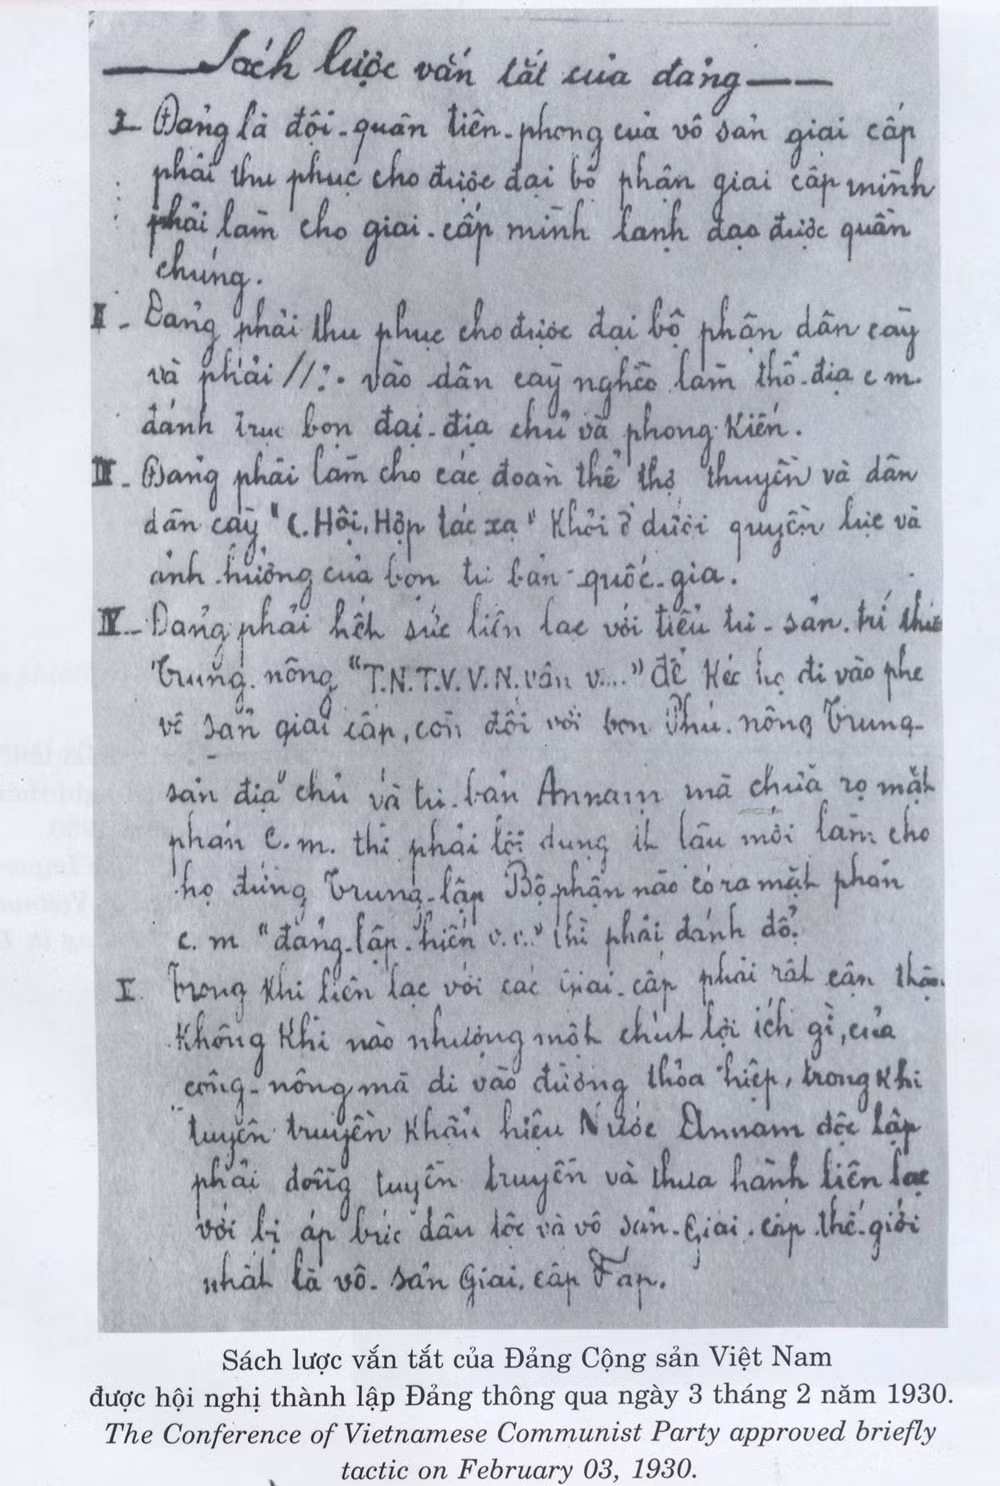 Sách lược vắn tắt của đảng
I - Đảng là đội-quân tiên-phong của vô sản giai cấp
phải thu phục cho được đại bộ phận giai cấp mình
phải làm cho giai-cấp mình lanh đạo được quần
chúng.
II - Đảng phải thu phục cho được đại bộ phận dân cày
và phải //:. vào dân cày nghèo làm thổ-địa c m.
đánh trục bọn đại-địa chủ và phong Kiến.
III - Đảng phải làm cho các đoàn thể thợ thuyền và dân
dân cày "C. Hội, Hộp tác xạ" Khỏi ở dưới quyền lực và
ảnh hưởng của bọn tư bản-quốc-gia.
IV - Đảng phải hết sức liên lạc với tiểu tư-sản, trí thức
Trung nông "T.N.T.V.V.N. vân v...." để Kéc họ đi vào phe
vô sản giai cấp, còn đối với bọn Phú nông Trung-
sản địa chủ và tư-bản Annam mà chưa rọ mặt
phản C.m. thì phải lợi dụng ít lâu mới làm cho
họ đứng Trung-lập Bộ phận nào có ra mặt phản
c. m "đảng-lập hiến v.v." thì phải đánh đổ.
V Trong Khi liên lạc với các giai-cấp phải rất cẩn thận.
Không Khi nào nhượng một chút lợi ích gì, của
công-nông mà đi vào đường thỏa hiệp, trong Khi
tuyên truyền Khẩu hiệu Nước Annam độc lập
phải đồng tuyên truyền và thưa hành liên lạc
với bị áp bức dân tộc và vô sản-Giai-cấp thế-giới
nhất là vô-sản Giai-cấp Fap.
Sách lược vắn tắt của Đảng Cộng sản Việt Nam
được hội nghị thành lập Đảng thông qua ngày 3 tháng 2 năm 1930.
The Conference of Vietnamese Communist Party approved briefly
tactic on February 03, 1930.